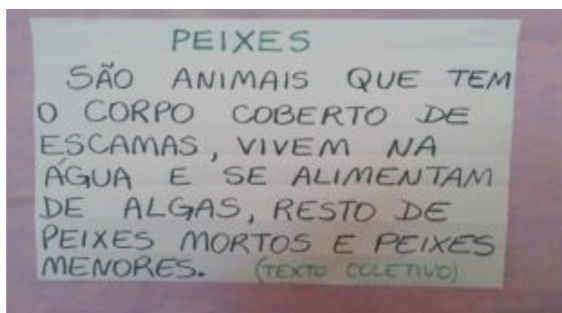 PEIXES
SÃO ANIMAIS QUE TEM
O CORPO COBERTO DE
ESCAMAS, VIVEM NA
ÁGUA E SE ALIMENTAM
DE ALGAS, RESTO DE
PEIXES MORTOS E PEIXES
MENORES. (TEXTO COLETIVO)